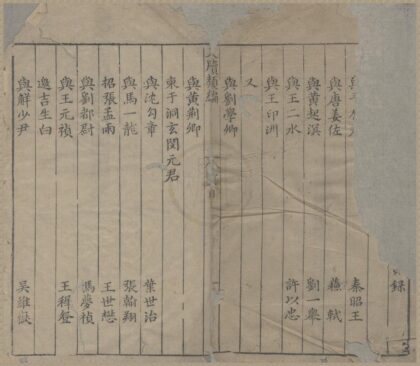 錄
與 秦昭王
與唐姜佐 蘇軾
與黃起溟 劉一臯
與王二水 許以忠
與王印洲
又
與劉學卿
牘類編
與黃荊卿
柬于洞玄閔元君
與沈勾章 葉世治
與馬一龍 張翰翔
招張孟雨 王世懋
與劉都尉 馮夢禎
與王元禎 王穉登
邀吉生白
與解少尹 吳維嶽